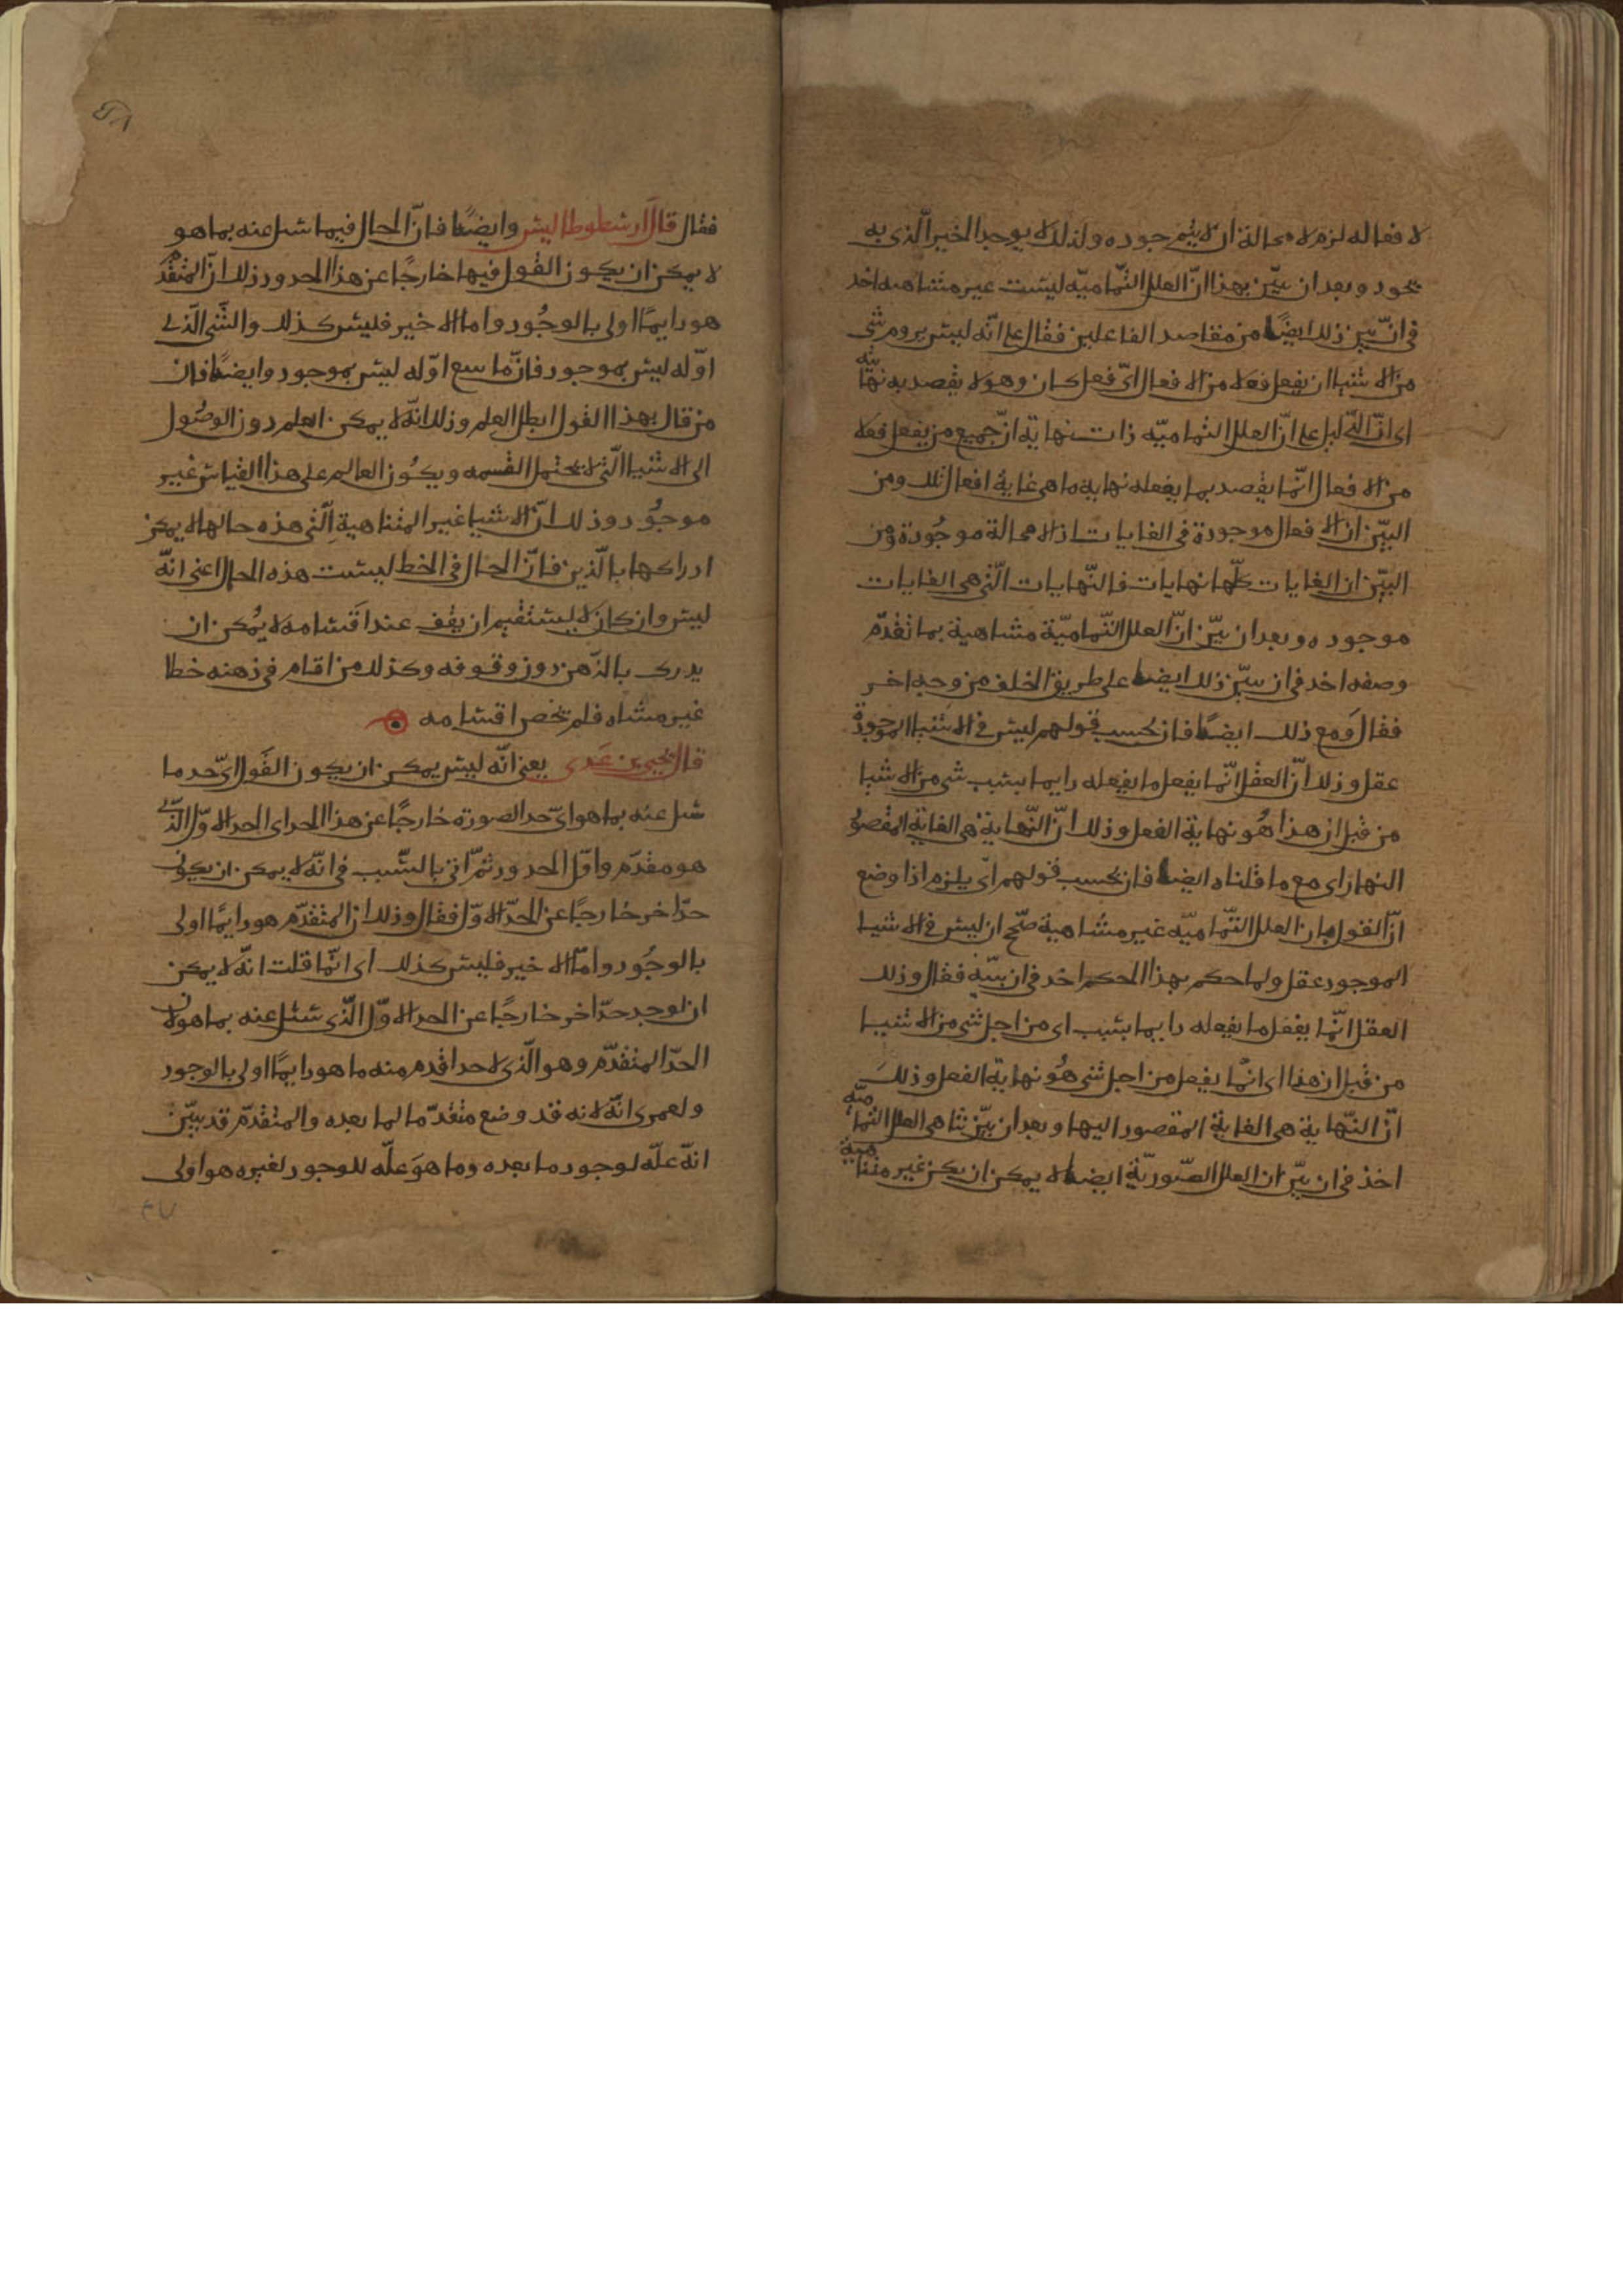 لا فعاله لزم لا محالة ان لا يتم جوده ولذلك لا يوجد الخير الّذى به
يجود وبعد ان بيّن بهذا انّ العلل التّماميّه ليست غير متناهيه اخد
فى ان يبيّن ذلك ايضًا من مقاصد الفاعلين فقال على انّه ليس يروم شى
من الاشيا ان يفعل فعلا من الافعال اىّ فعل كان وهو لا يقصد به نهايه
اى انّ الدّليل على انّ العلل التماميّه ذات نهاية انّ جميع من يفعل فعلا
من الافعال انّما يقصد بما يفعله نهايه ما هى غاية افعال تلك ومن
البيّن ان الافعال موجودة فى الغايات اذ لا محالة موجُودة ومن
البيّن ان الغايات كلّها نهايات فالنّهايات الّتى هى الغايات
موجوده وبعد ان بيّن انّ العلل التّماميّة متناهية بما تقدّم
وصفه اخد فى ان يبيّن ذلك ايضا على طريق الخلف من وجه اخر
فقال وَمع ذلك ايضًا فان بحسب قولهم ليس فى الاشيا الموجودة
عقل وذلك انّ العقل انّما يفعل ما يفعله دايما بسبب شى من الاشيا
من قبل ان هذا هُو نهاية الفعل وذلك انّ النّهاية هى الغاية المقصو
اليها اى مع ما قلناه ايضا فان بحسب قولهم اى يلزم اذا وضع
انّ القول بان العلل التّماميّه غير متناهية صحّ ان ليس فى الاشيا
الموجود عقل ولما حكم بهذا الحكم اخد فى ان يبيّنه فقال وذلك
العقل انّما يفعل ما يفعله دايما بسبب اى من اجل شى من الاشيا
من قبل ان هذا اى انّما يفعل من اجل شى هُو نهاية الفعل وذلك
انّ النّهاية هى الغاية المقصود اليها وبعد ان بيّن تناهى العلل التماميّه
اخذ فى ان يبيّن ان العلل الصّوريّة ايضا لا يمكن ان يكن غير متناهية
فقال قال ارسطوطاليس وايضًا فانّ الحال فيما سل عنه بما هو
لا يمكن ان يكون القول فيها خارجًا عن هذا الحد وذلك انّ المتقدّم
هو دايمًا اولى بالوجُود واما الاخير فليس كذلك والشّى الّذى
اوّله ليس بموجود فانّ ما سع اوّله ليس بموجود وايضًا فان
من قال بهذا القول ابطل العلم وذلك انّه لا يمكن العلم دون الوصُول
الى الاشيا الّتى لا تحتمل القسمه ويكُون العالم على هذا القياس غير
موجُود وذلك انّ الاشيا غير المتناهية الّتى هذه حالها لا يمكن
ادراكها بالّذين فانّ الحال فى الخط ليست هذه الحال اعنى انّه
ليس وان كان لا يستقيم ان يقف عند اقسامه لا يُمكن ان
يدرك بالذّهن دون وقوفه وكذلك من اقام فى ذهنه خطا
غير متناه فلم تحص اقسامه
قال يحيى بن عَدى يعنى انّه ليس يمكن ان يكون القول اىّ حد ما
سل عنه بما هو اىّ حد الصورة خارجًا عن هذا الحد اى الحد الاوّل الّذى
هو مقدّم واوّل الحدود ثمّ اتى بالسّبب فى انّه لا يمكن ان يكون
حدّ اخر خارجًا عن الحدّ الاوّل فقال وذلك ان المتقدّم هو دايمًا اولى
بالوجُود وامّا الاخير فليس كذلك اى انّما قلت انّه لا يمكن
ان يوجد حدّ اخر خارجًا عن الحد الاوّل الّذى سئل عنه بما هو لان
الحدّ المتقدّم وهو الّذى لا حد اقدم منه ما هو دايمًا اولى بالوجود
ولعمرى انّه لانه قد وضع متقدّما لما بعده والمتقدّم قد بيّن
انّه علّه لوجود ما بعده وما هوَ علّه للوجود لغيره هو اولى